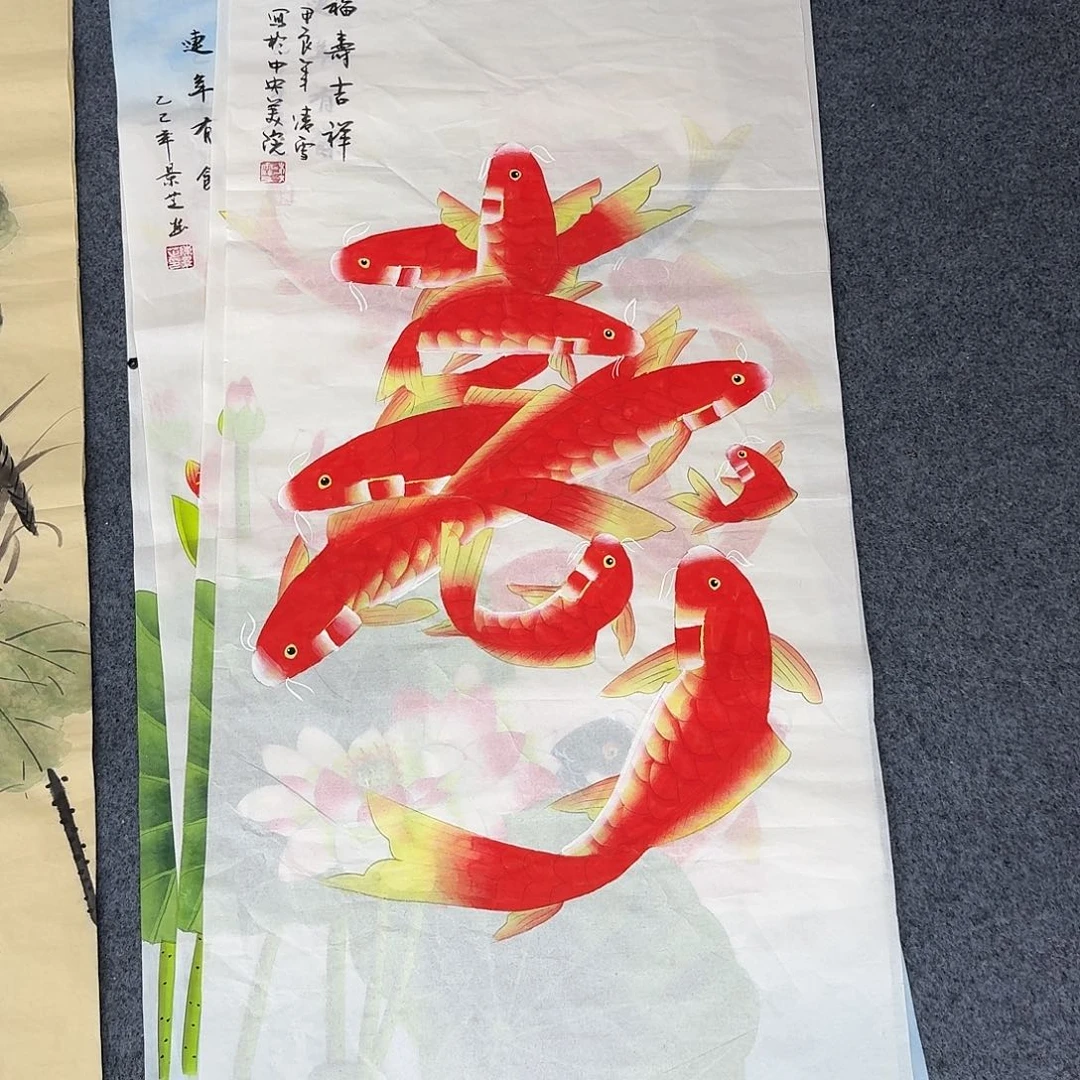 福壽吉祥
甲辰年 清雪
寫於中央美院
連年有餘
乙巳年景芝画